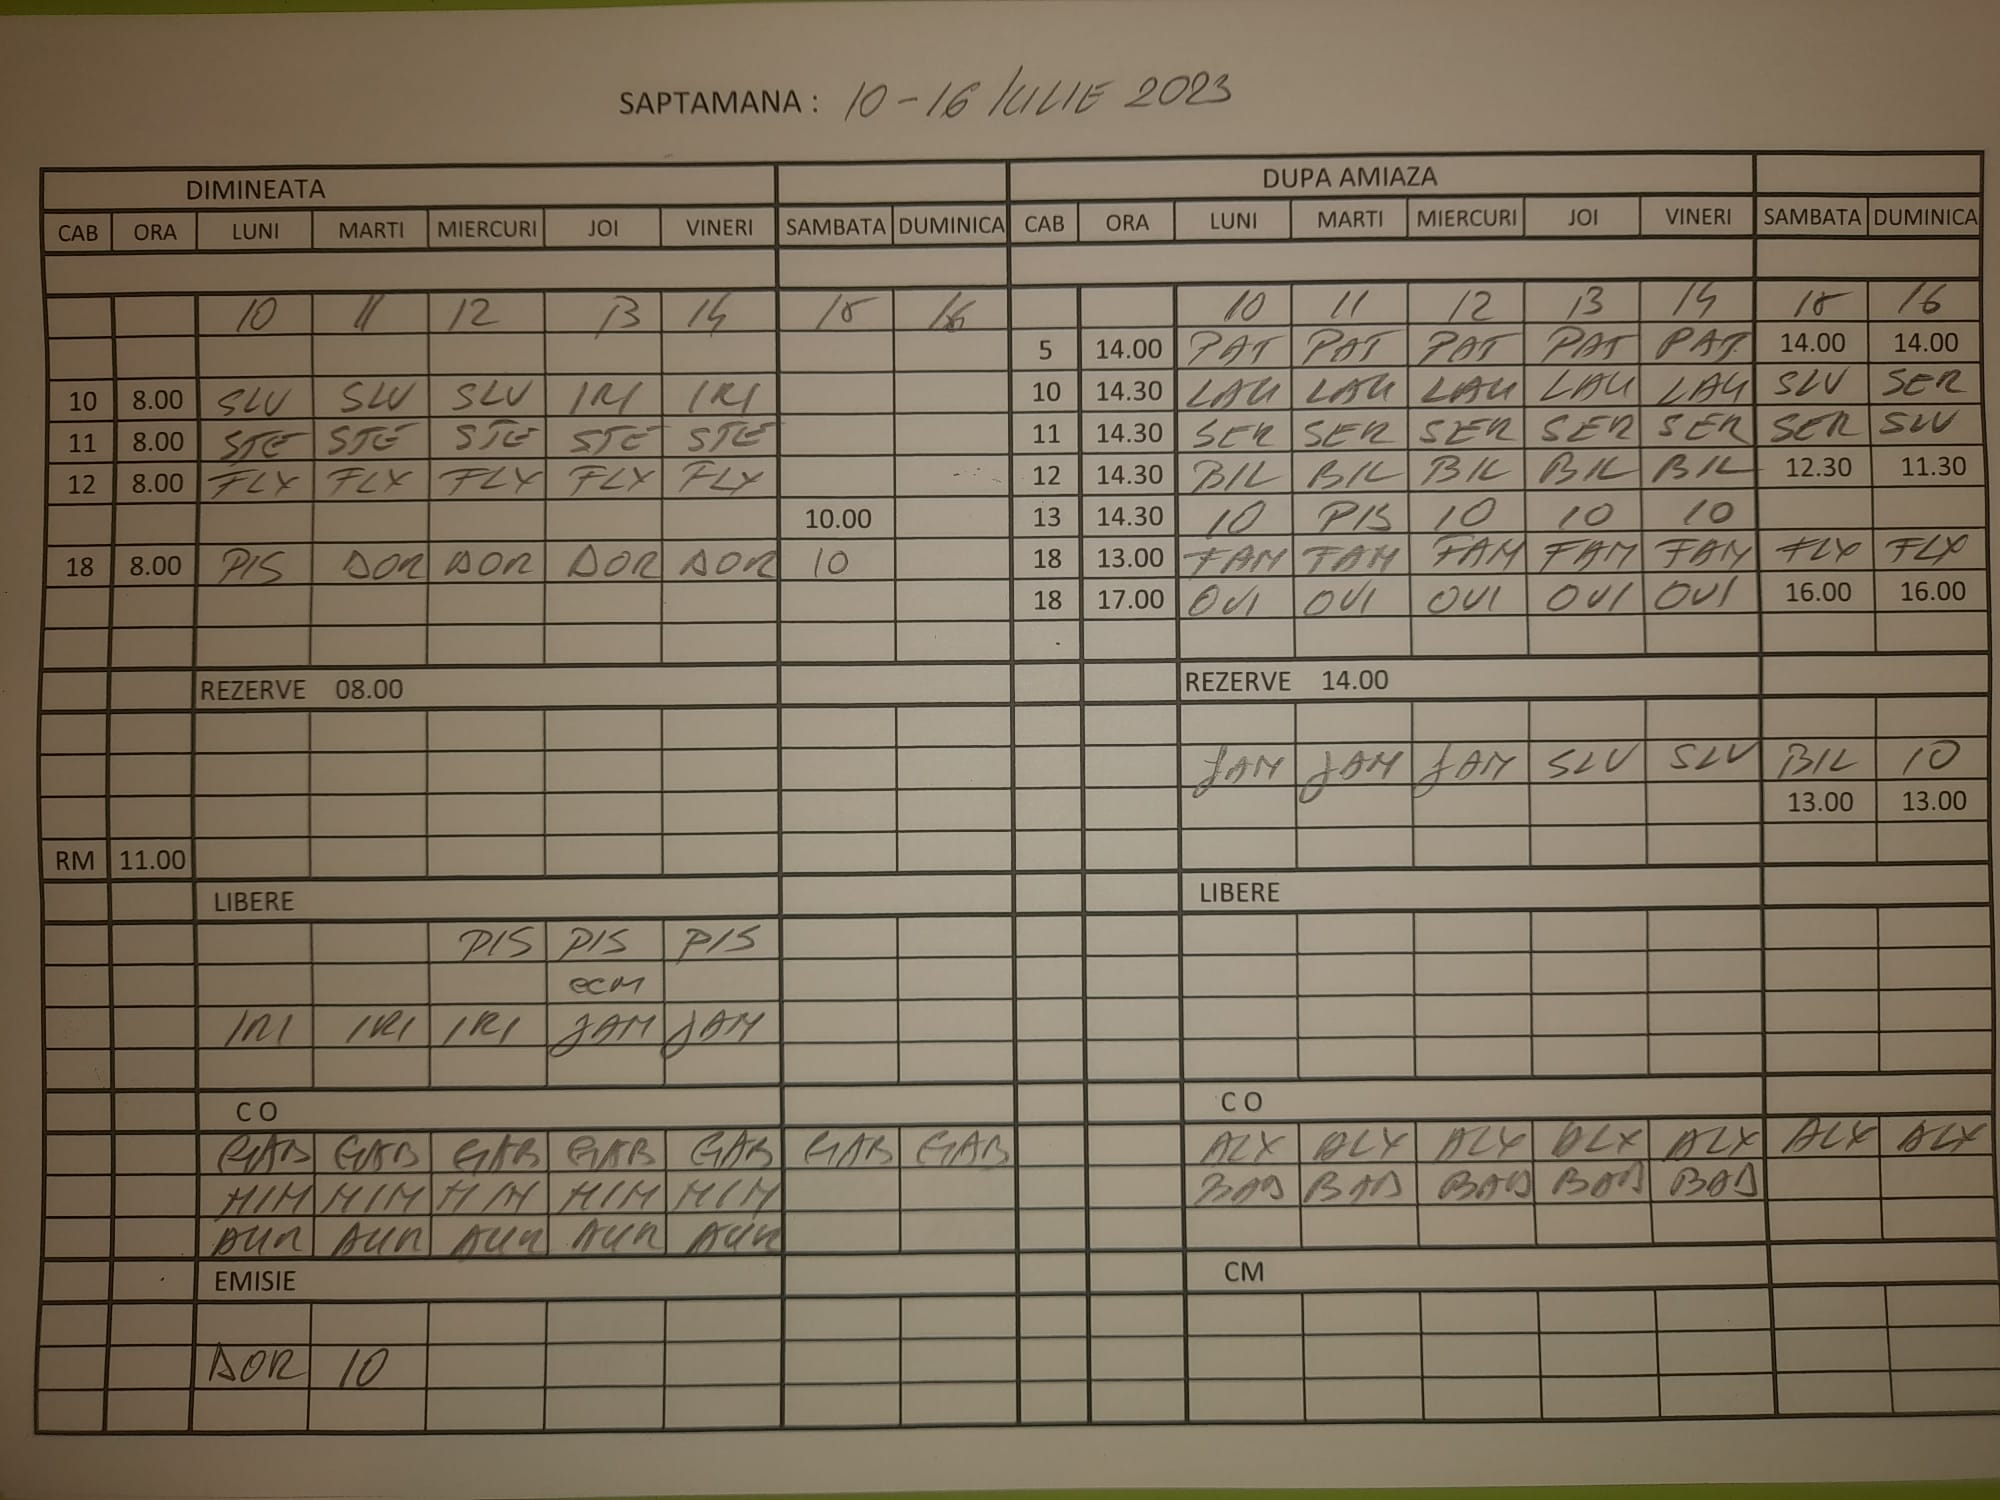 SAPTAMANA : 10-16 IULIE 2023
DIMINEATA DUPA AMIAZA
CAB ORA LUNI MARTI MIERCURI JOI VINERI SAMBATA DUMINICA CAB ORA LUNI MARTI MIERCURI JOI VINERI SAMBATA DUMINICA
10 11 12 13 14 15 16 10 11 12 13 14 15 16
5 14.00 PAT PAT PAT PAT PAT 14.00 14.00
10 8.00 SLV SLV SLV IRI IRI 10 14.30 LAU LAU LAU LAU LAU SLV SER
11 8.00 STE STE STE STE STE 11 14.30 SER SER SER SER SER SER SLV
12 8.00 FLX FLX FLX FLX FLX 12 14.30 BIL BIL BIL BIL BIL 12.30 11.30
10.00 13 14.30 10 PIS 10 10 10
18 8.00 PIS DOR DOR DOR DOR 10 18 13.00 FAM FAM FAM FAM FAM FLX FLX
18 17.00 OVI OVI OVI OVI OVI 16.00 16.00
REZERVE 08.00 REZERVE 14.00
JAM JAM JAM SLV SLV BIL 10
13.00 13.00
RM 11.00
LIBERE LIBERE
PIS PIS PIS
ECM
IRI IRI IRI JAM JAM
C O C O
GAB GAB GAB GAB GAB GAB GAB ALX ALX ALX ALX ALX ALX ALX
MIM MIM MIM MIM MIM BAD BAD BAD BAD BAD
AUR AUR AUR AUR AUR
EMISIE CM
DOR 10